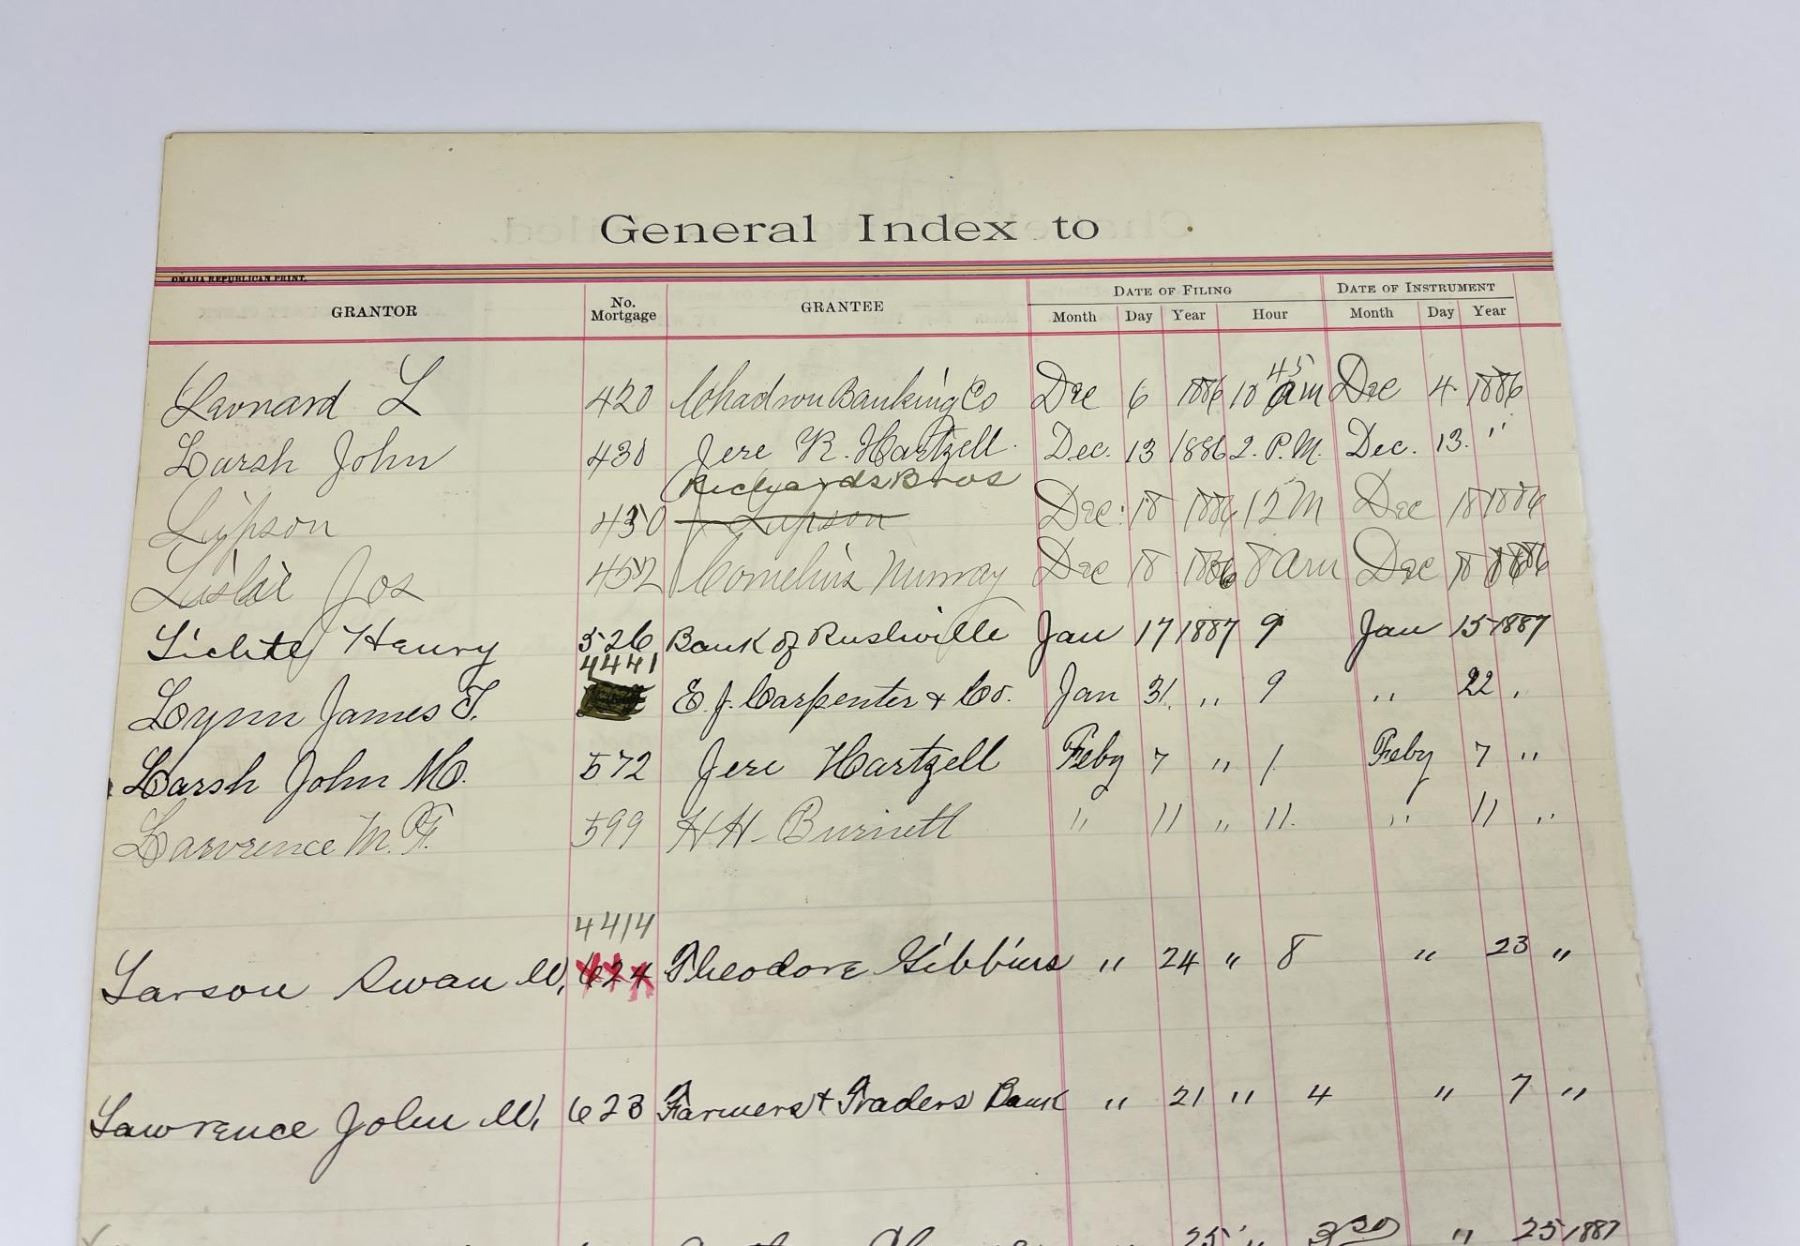 General Index to
OMAHA REPUBLICAN PRINT.
GRANTOR No. Mortgage GRANTEE DATE OF FILING DATE OF INSTRUMENT
Month Day Year Hour Month Day Year
Leonard L 420 Chadron Banking Co Dec 6 1886 10 45 am Dec 4 1886
Larsh John 430 Jere R. Hartzell. Dec. 13 1886 2. P.M. Dec. 13. "
Richards Bros
Lipson 450 Lipson Dec. 18 1886 12 M Dec 18 1886
Leslie Jos 452 Cornelius Murray Dec 18 1886 8 am Dec 18 1886
Lichte Henry 526 Bank of Rushville Jan 17 1887 9 Jan 15 1887
4441
Lynn James T. E. J. Carpenter & Co. Jan 31. " 9 " 22 "
Larsh John M. 572 Jere Hartzell Feby 7 " 1 Feby 7 "
Lawrence M. F. 599 H H. Burnett " 11 " 11. " 11 "
4414
Larson Swan W. 624 Theodore Gibbins " 24 " 8 " 23 "
Lawrence John W. 623 Farmers & Traders Bank " 21 " 4 " 7 "
25 " 3 30 " 25 1887